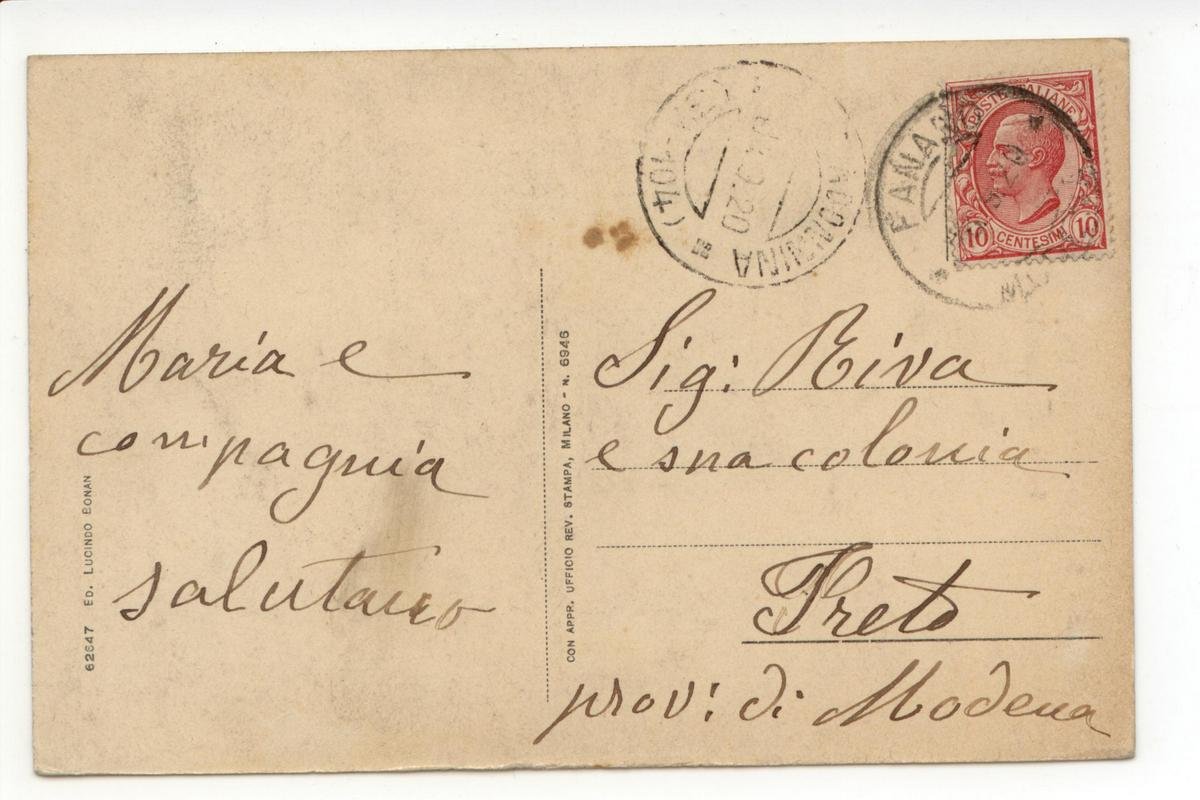 Maria e
compagnia
salutano
62647 ED. LUCINDO BONAN
CON APPR. UFFICIO REV. STAMPA, MILANO - N. 6946
POSTE ITALIANE
10 CENTESIMI 10
FANANO
(40L-104)
20
Sig: Riva
e sua colonia
prov: di Modena